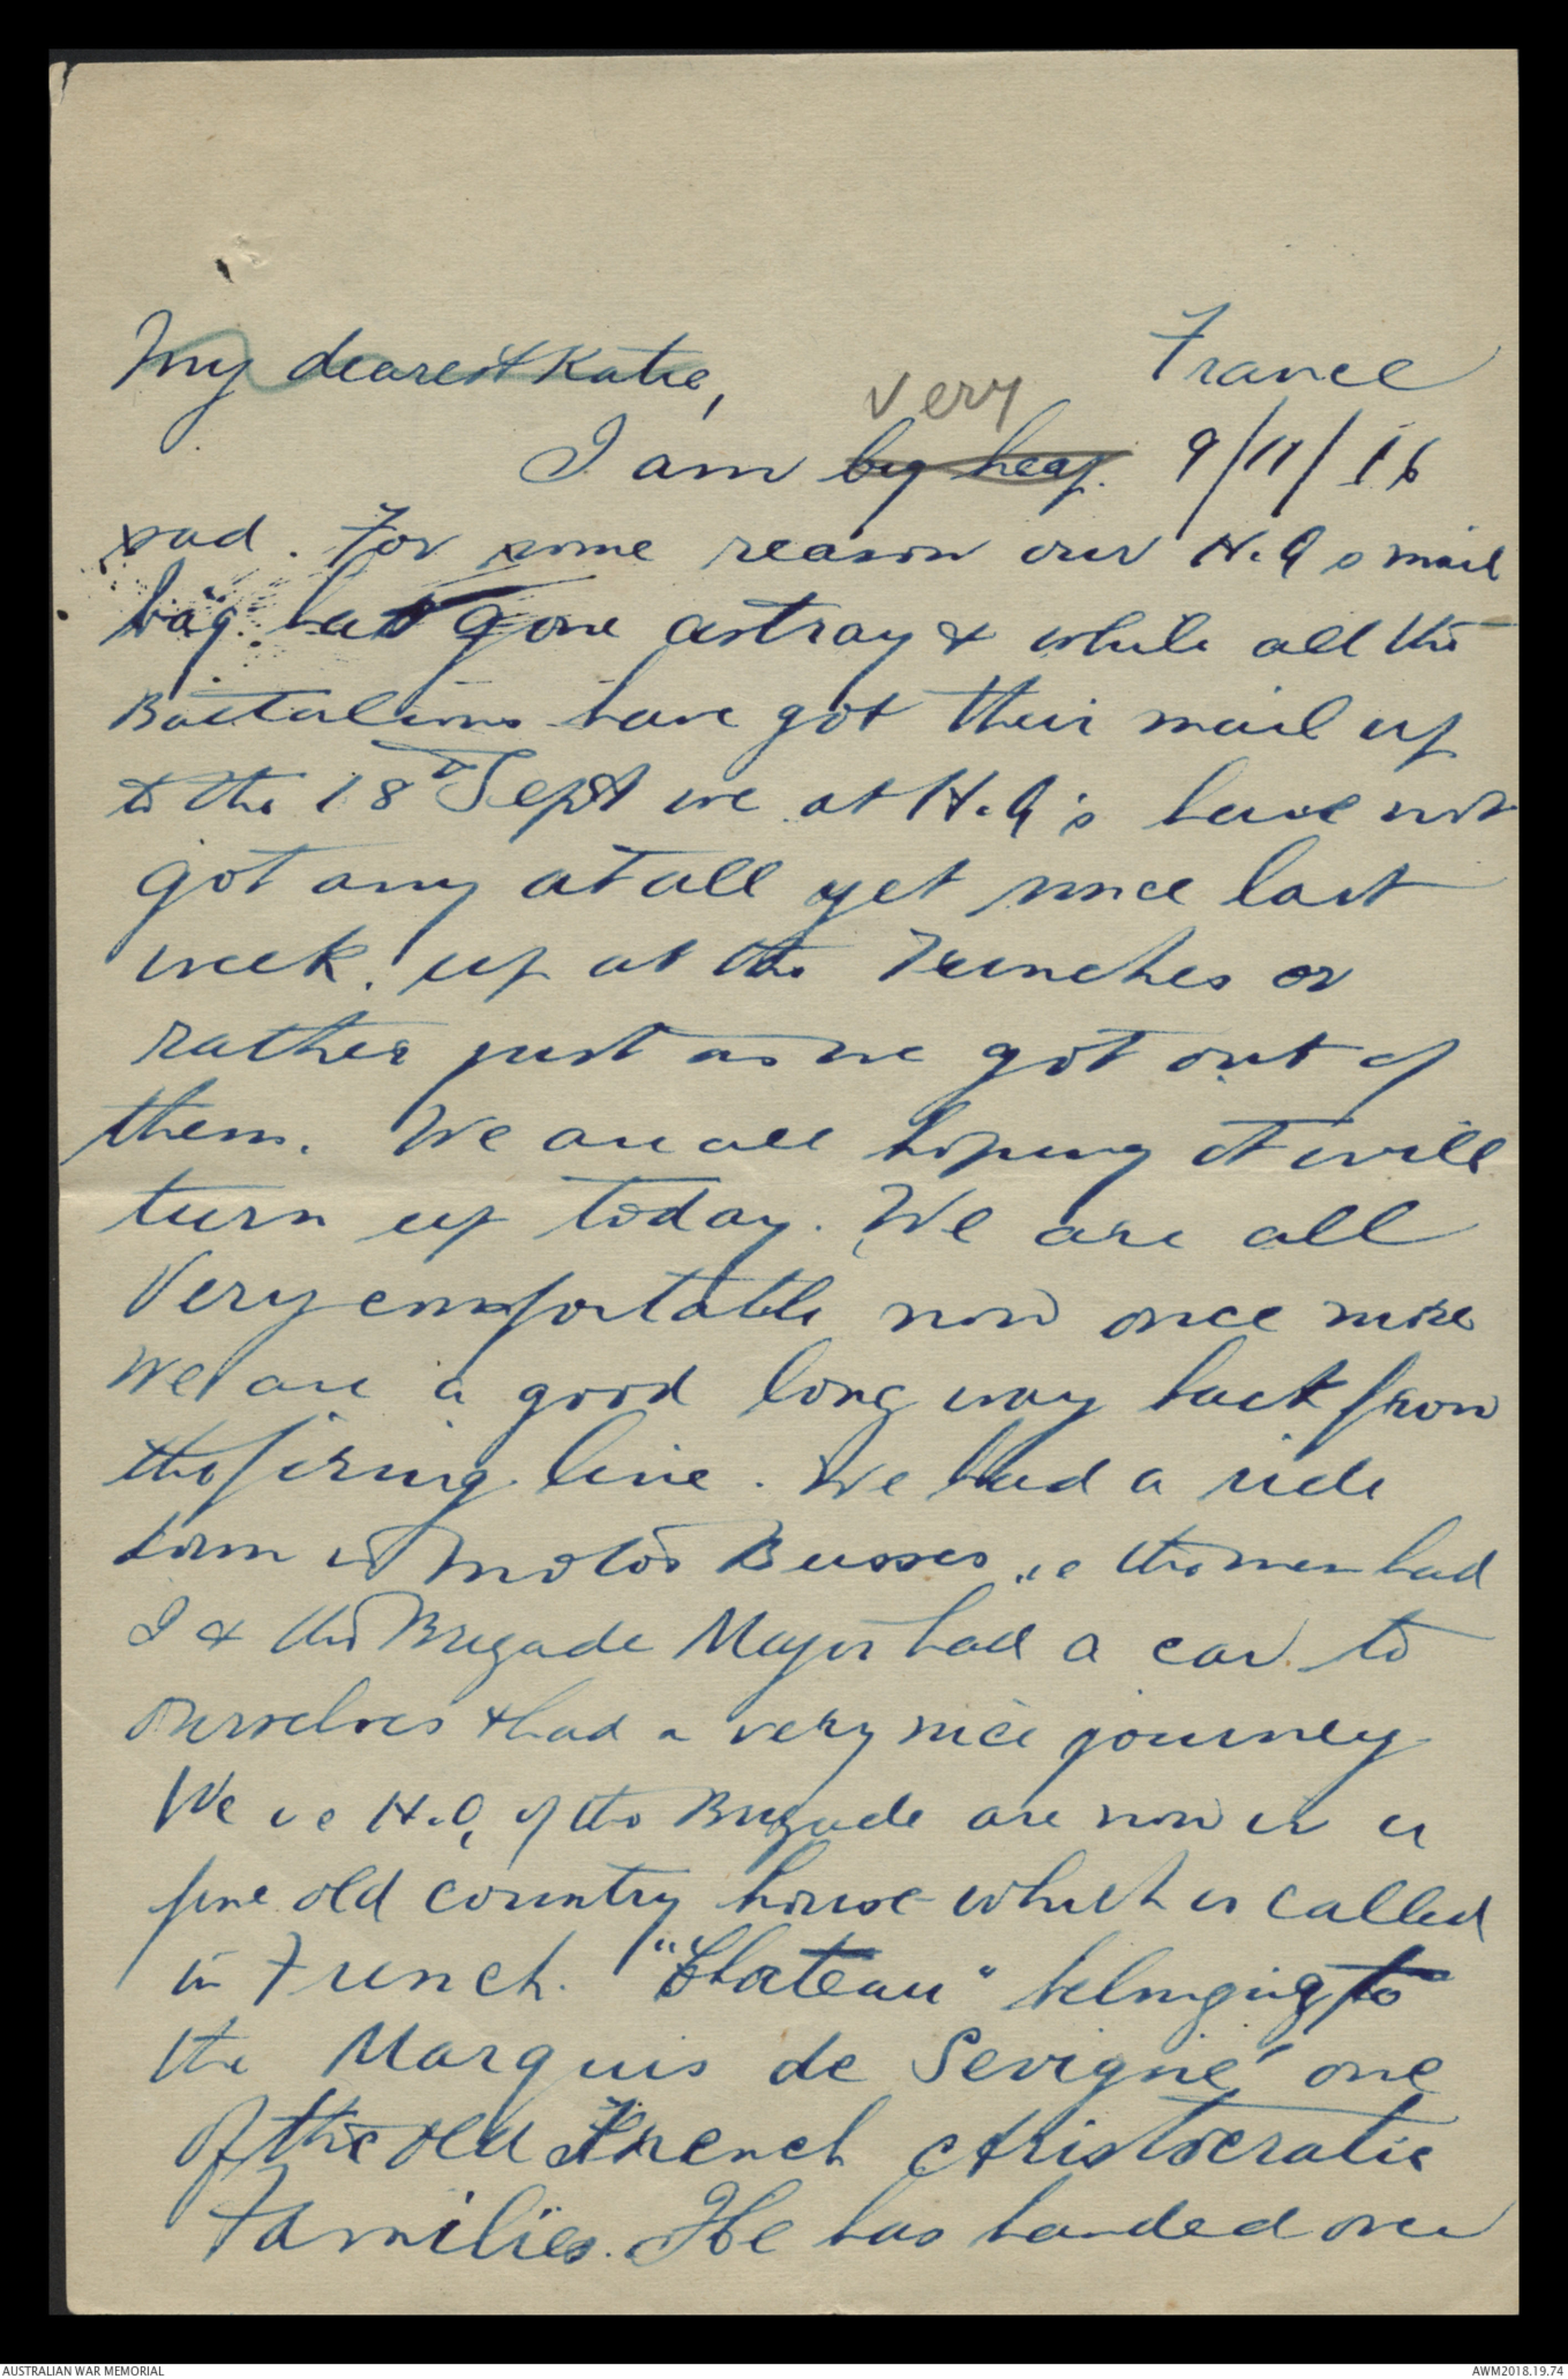 France
My dearest Katie,
very
I am big heap. 9/11/16
sad. For some reason our H.Q s mail
bag has gone astray & while all the
Battalions have got their mail up
to the 18th Sept we at H.Q's have not
got any at all yet since last
week. up at the Trenches or
rather just as we got out of
them. We are all hoping it will
turn up today. We are all
Very comfortable now once more
We are a good long way back from
the firing line. We had a ride
down in Motor Busses ie the men had
I & the Brigade Major had a car to
ourselves & had a very nice journey
We ie H.Q. of the Brigade are now in a
fine old country house which is called
in French. "Chateau" belonging to
the Marquis de Sevigné one
of the old French Aristocratic
Families. He has handed over
AUSTRALIAN WAR MEMORIAL
AWM2018.19.74